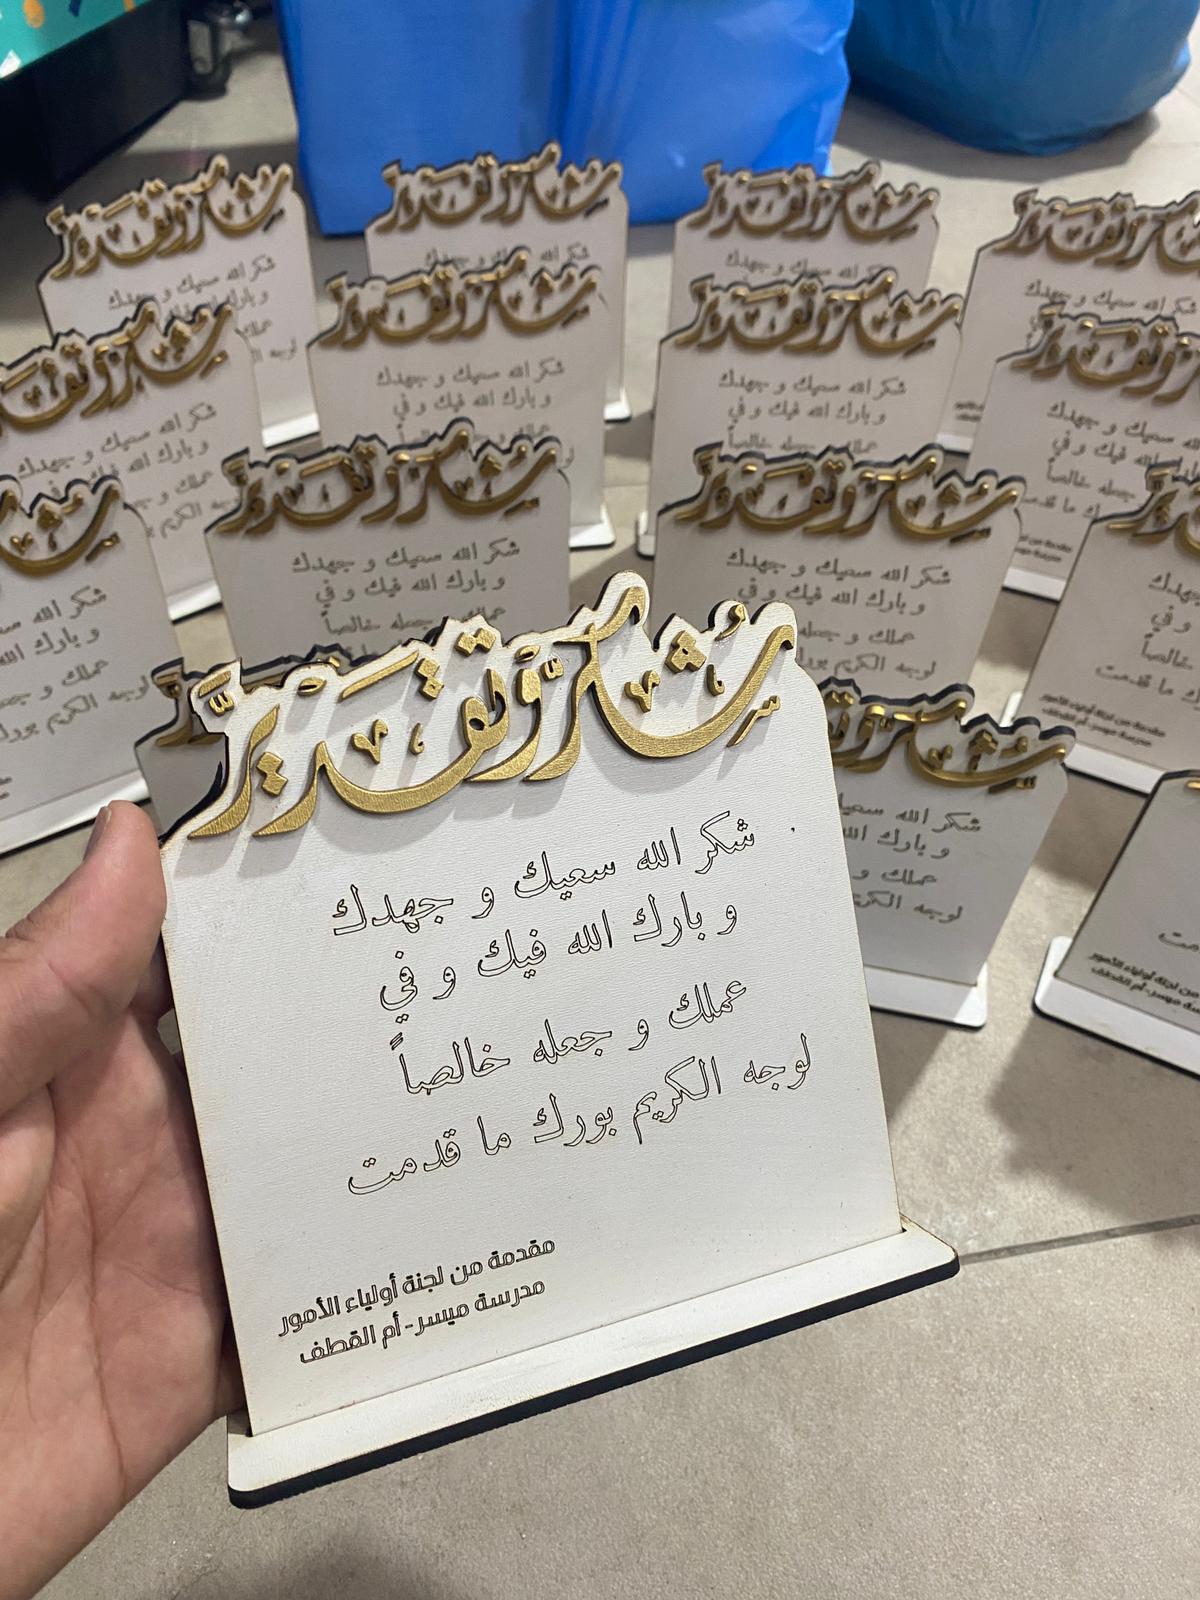 شكر وتقدير
شكر الله سعيك و جهدك
و بارك الله فيك و في
عملك و جعله خالصاً
لوجه الكريم بورك ما قدمت
مقدمة من لجنة أولياء الأمور
مدرسة ميسر - أم القطف